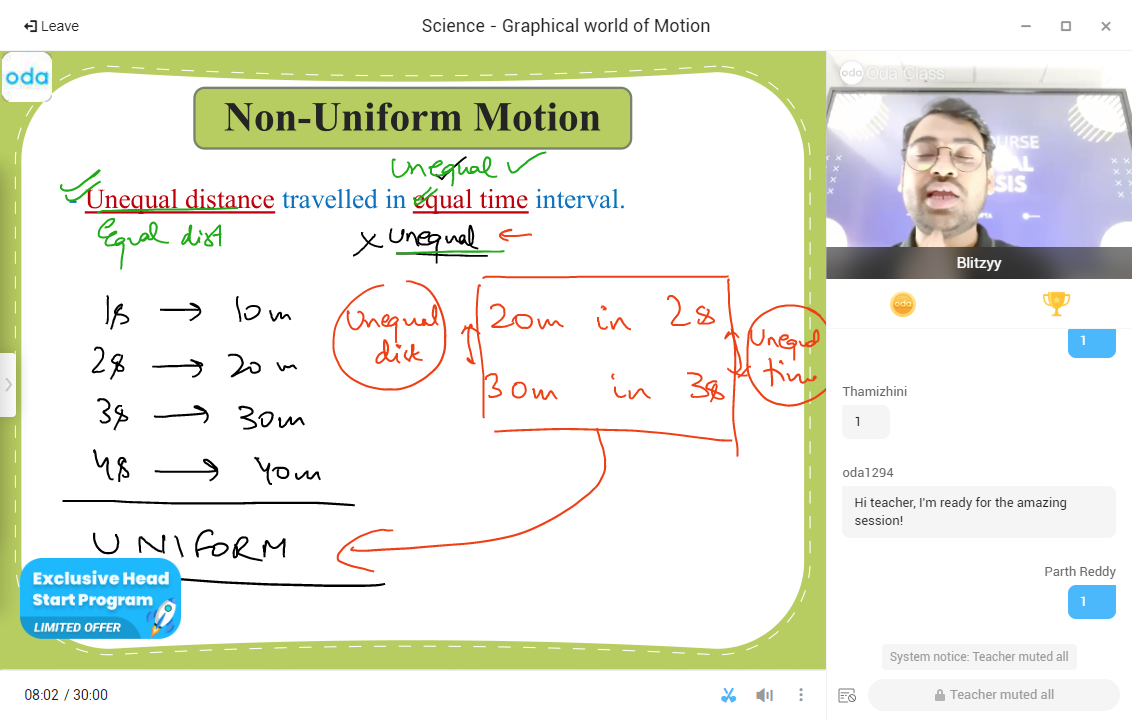 Leave
Science - Graphical world of Motion
oda
Non-Uniform Motion
Unequal
- Unequal distance travelled in equal time interval.
Equal dist
x Unequal
1s → 10m
2s → 20m
3s → 30m
4s → 40m
UNIFORM
Unequal
dist
20m in 2s
30m in 3s
Unequal
time
Exclusive Head
Start Program
LIMITED OFFER
08:02 / 30:00
oda Oda Class
Blitzyy
oda
1
Thamizhini
1
oda1294
Hi teacher, I'm ready for the amazing
session!
Parth Reddy
1
System notice: Teacher muted all
Teacher muted all